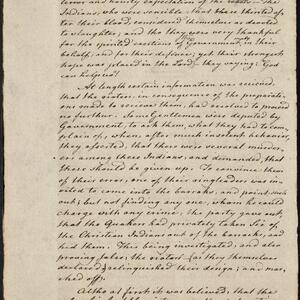 terror and hourly expectation of the
Indians, who were sensible, that these thirsted af-
ter their blood, considered themselves as devoted
to slaughter; and tho' they were very thankful
for the spirited exertions of the Government, in their
behalf, and for their defence; yet their strongest
hope was placed in the Lord; they saying, God
can help us!
At length certain information was received,
that the rioters in consequence of the preparati-
ons made to receive them, had resolved to proceed
no further. Some Gentlemen were deputed by
Government, to ask them, what they had to com-
plain of, when, after much insolent behavior,
they asserted, that there were several murder-
ers among these Indians, and demanded, that
these should be given up. To convince them
of their error, one of their ringleaders was in-
vited to come into the barraks, and point such
out; but not finding any one, whom he could
charge with any crime, the party gave out,
that the Quakers had privately taken Six of
the Christian Indians out of the barraks, and
hid them. This being investigated, and also
proving false, the rioters (as they themselves
declared) relinquished their design, and mar-
ched off.
Altho' at first it was believed, that the